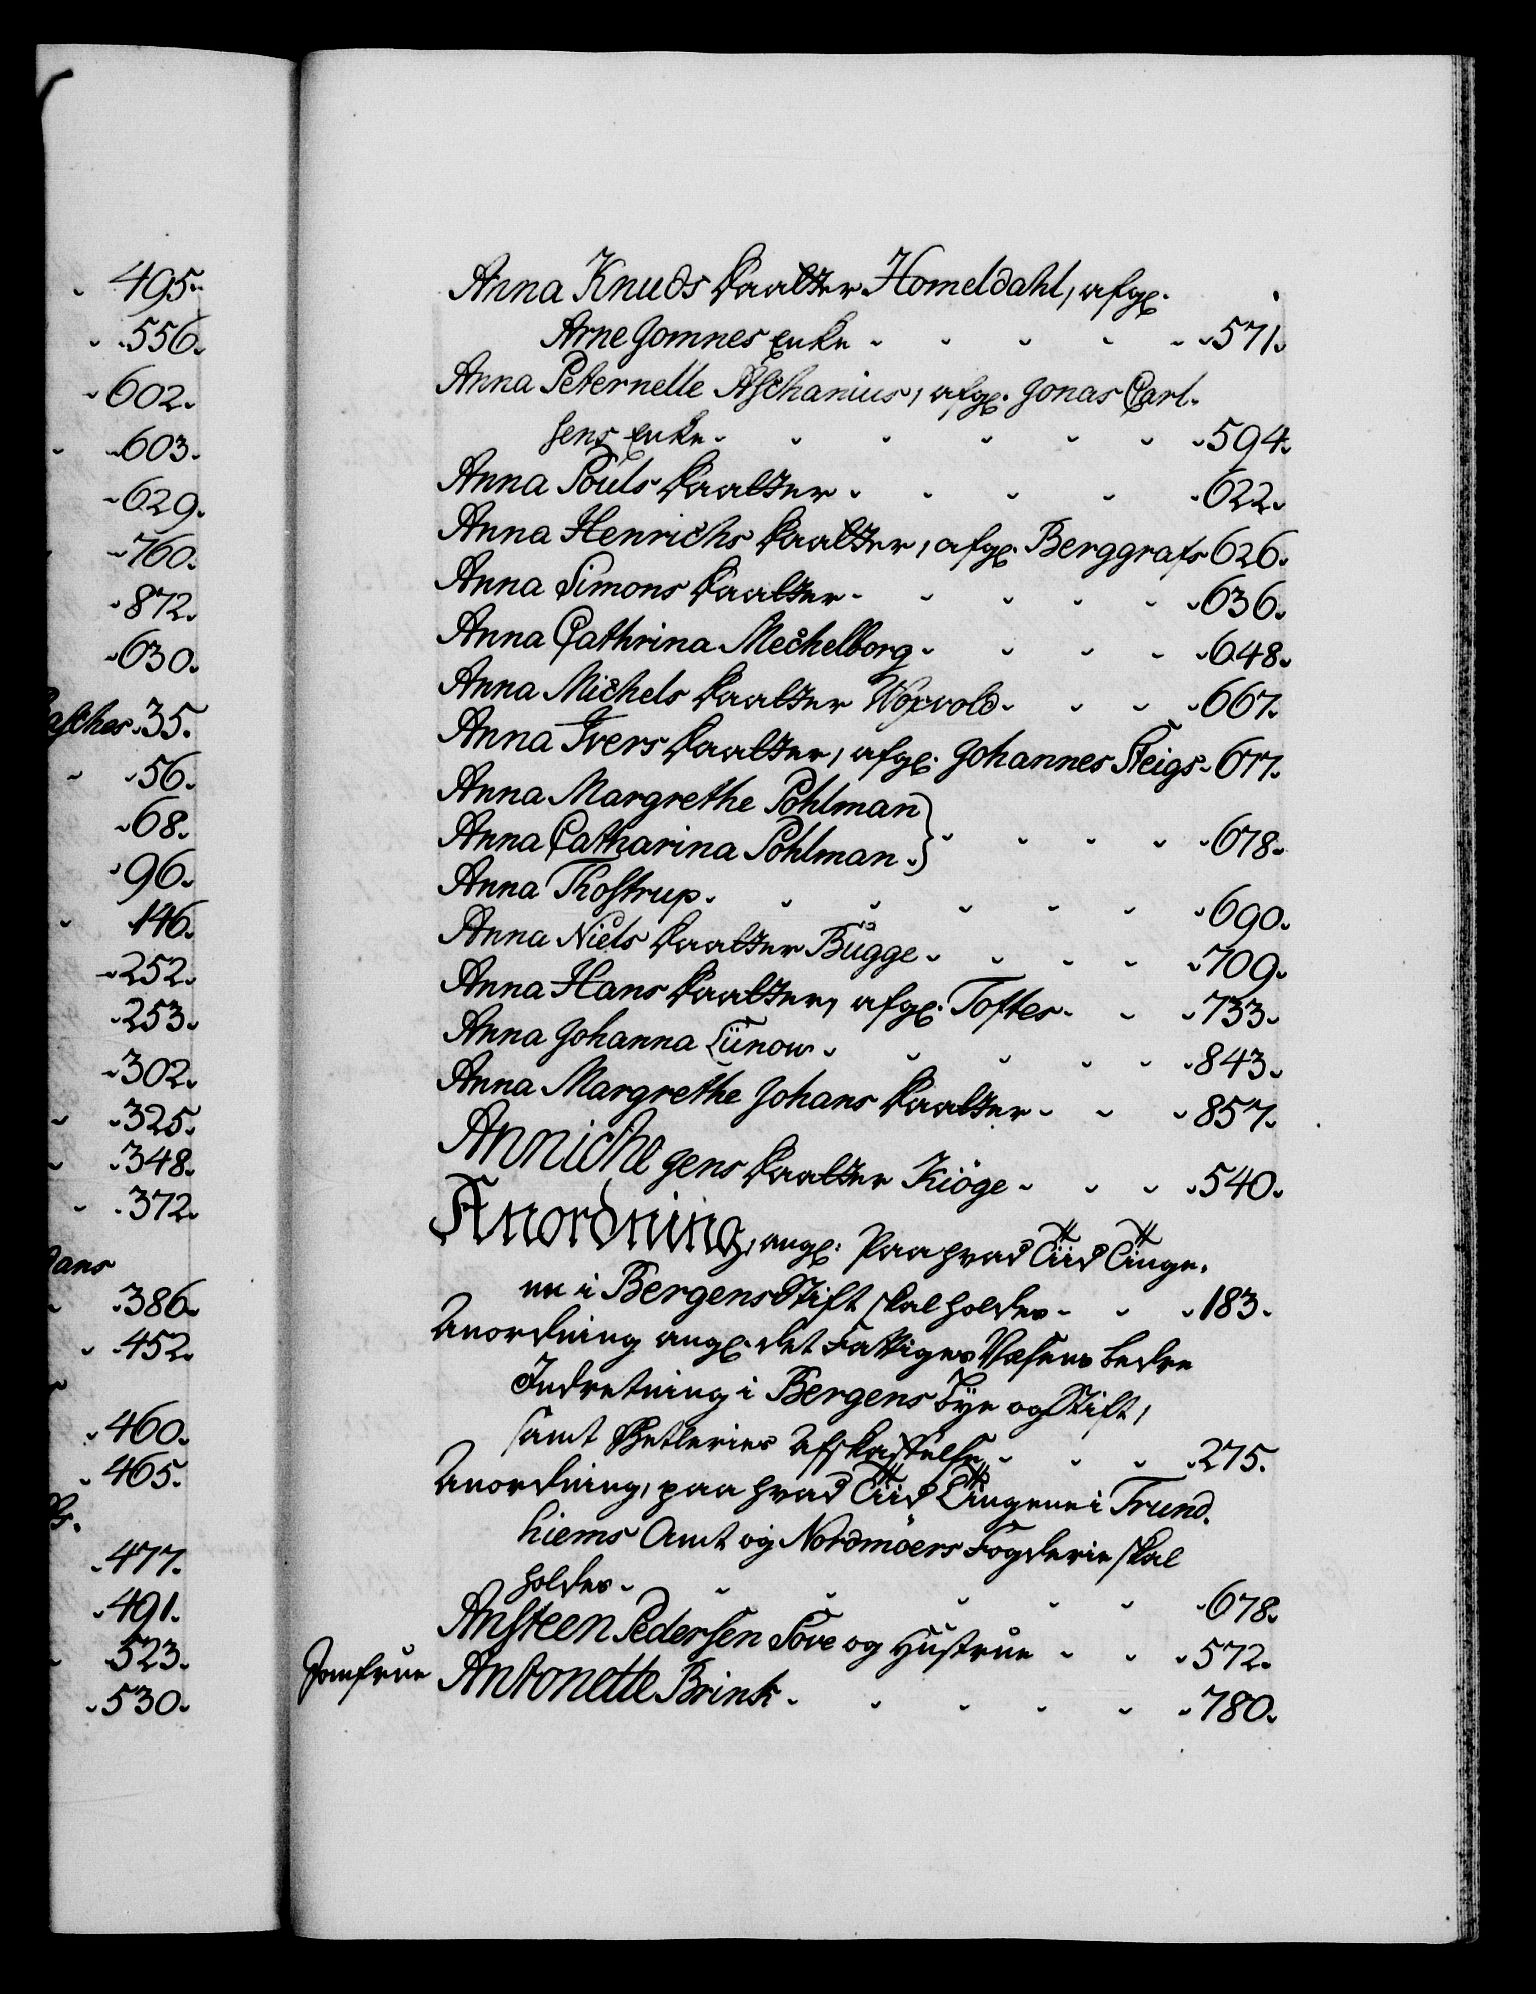 495.
556.
602.
603.
629.
760.
872.
630.
35.
56.
68.
96.
146.
252.
253.
302.
325.
348.
372.
386.
452.
460.
465.
477.
491.
523.
530.
Anna Knuds Daatter Homeldahl, afg.
Arne Gomnes Enke - - - - - 571.
Anna Peternelle Aschanius, afg. Jonas Carl-
sens Enke - - - - - - 594.
Anna Pouls Daatter - - - - 622.
Anna Henrichs Daatter, afg. Berggrafs 626.
Anna Simons Daatter - - - - 636.
Anna Cathrina Mechelborg - - - - 648.
Anna Michels Daatter Woxvold - - - - 667.
Anna Ivers Daatter, afg. Johannes Steigs - 677.
Anna Margrethe Pohlman
Anna Catharina Pohlman } - - - - 678.
Anna Thostrup - - - - - - 690.
Anna Niels Daatter Bugge - - - - 709.
Anna Hans Daatter, afg. Toftes - - - 733.
Anna Johanna Lünow - - - - - 843.
Anna Margrethe Johans Daatter - - - 857.
Anniche Jens Daatter Kiöge - - - - 540.
Anordning, ang: Paa hvad Tiid Tinge-
ne i Bergens Stift skal holdes - - - 183.
Anordning ang. det Fattiges Væsens bedre
Indretning i Bergens Bye og Stift,
samt Betleries Afskaffelse - - - 275.
Anordning, paa hvad Tiid Tingene i Trund-
hiems Amt og Nordmöers Fogderie skal
holdes - - - - - - 678.
Ansteen Pedersen Sove og Hustrue - - - 572.
Jomfrue Antonette Brink - - - - - - 780.